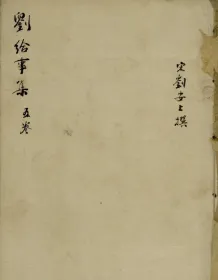 劉給事集 五卷
宋劉安上撰